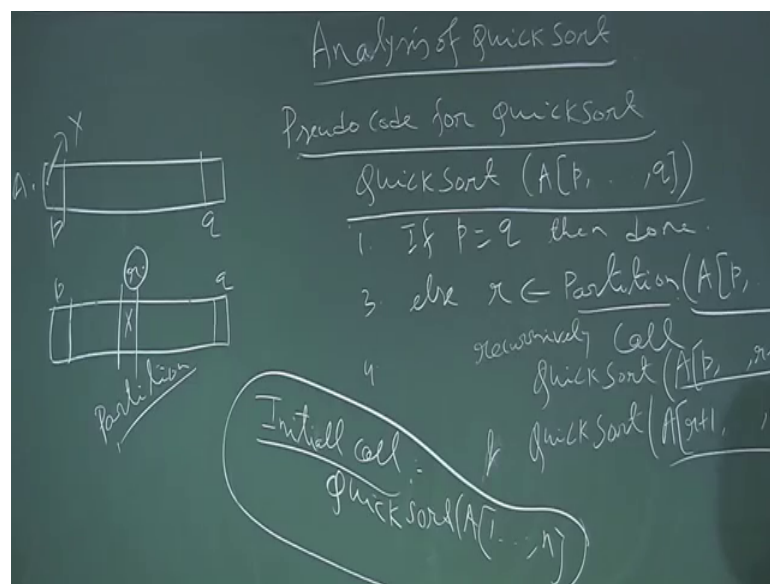 Analysis of QuickSort
Pseudo code for QuickSort
QuickSort (A[p, . . , q])
1. If p = q then done.
3. else r ← Partition (A[p, .
recursively call
4
QuickSort (A[p, , r-
& QuickSort (A[r+1, ,
Initial call :-
QuickSort (A[1 . . . , n]
X
A.
p q
p r q
X
Partition